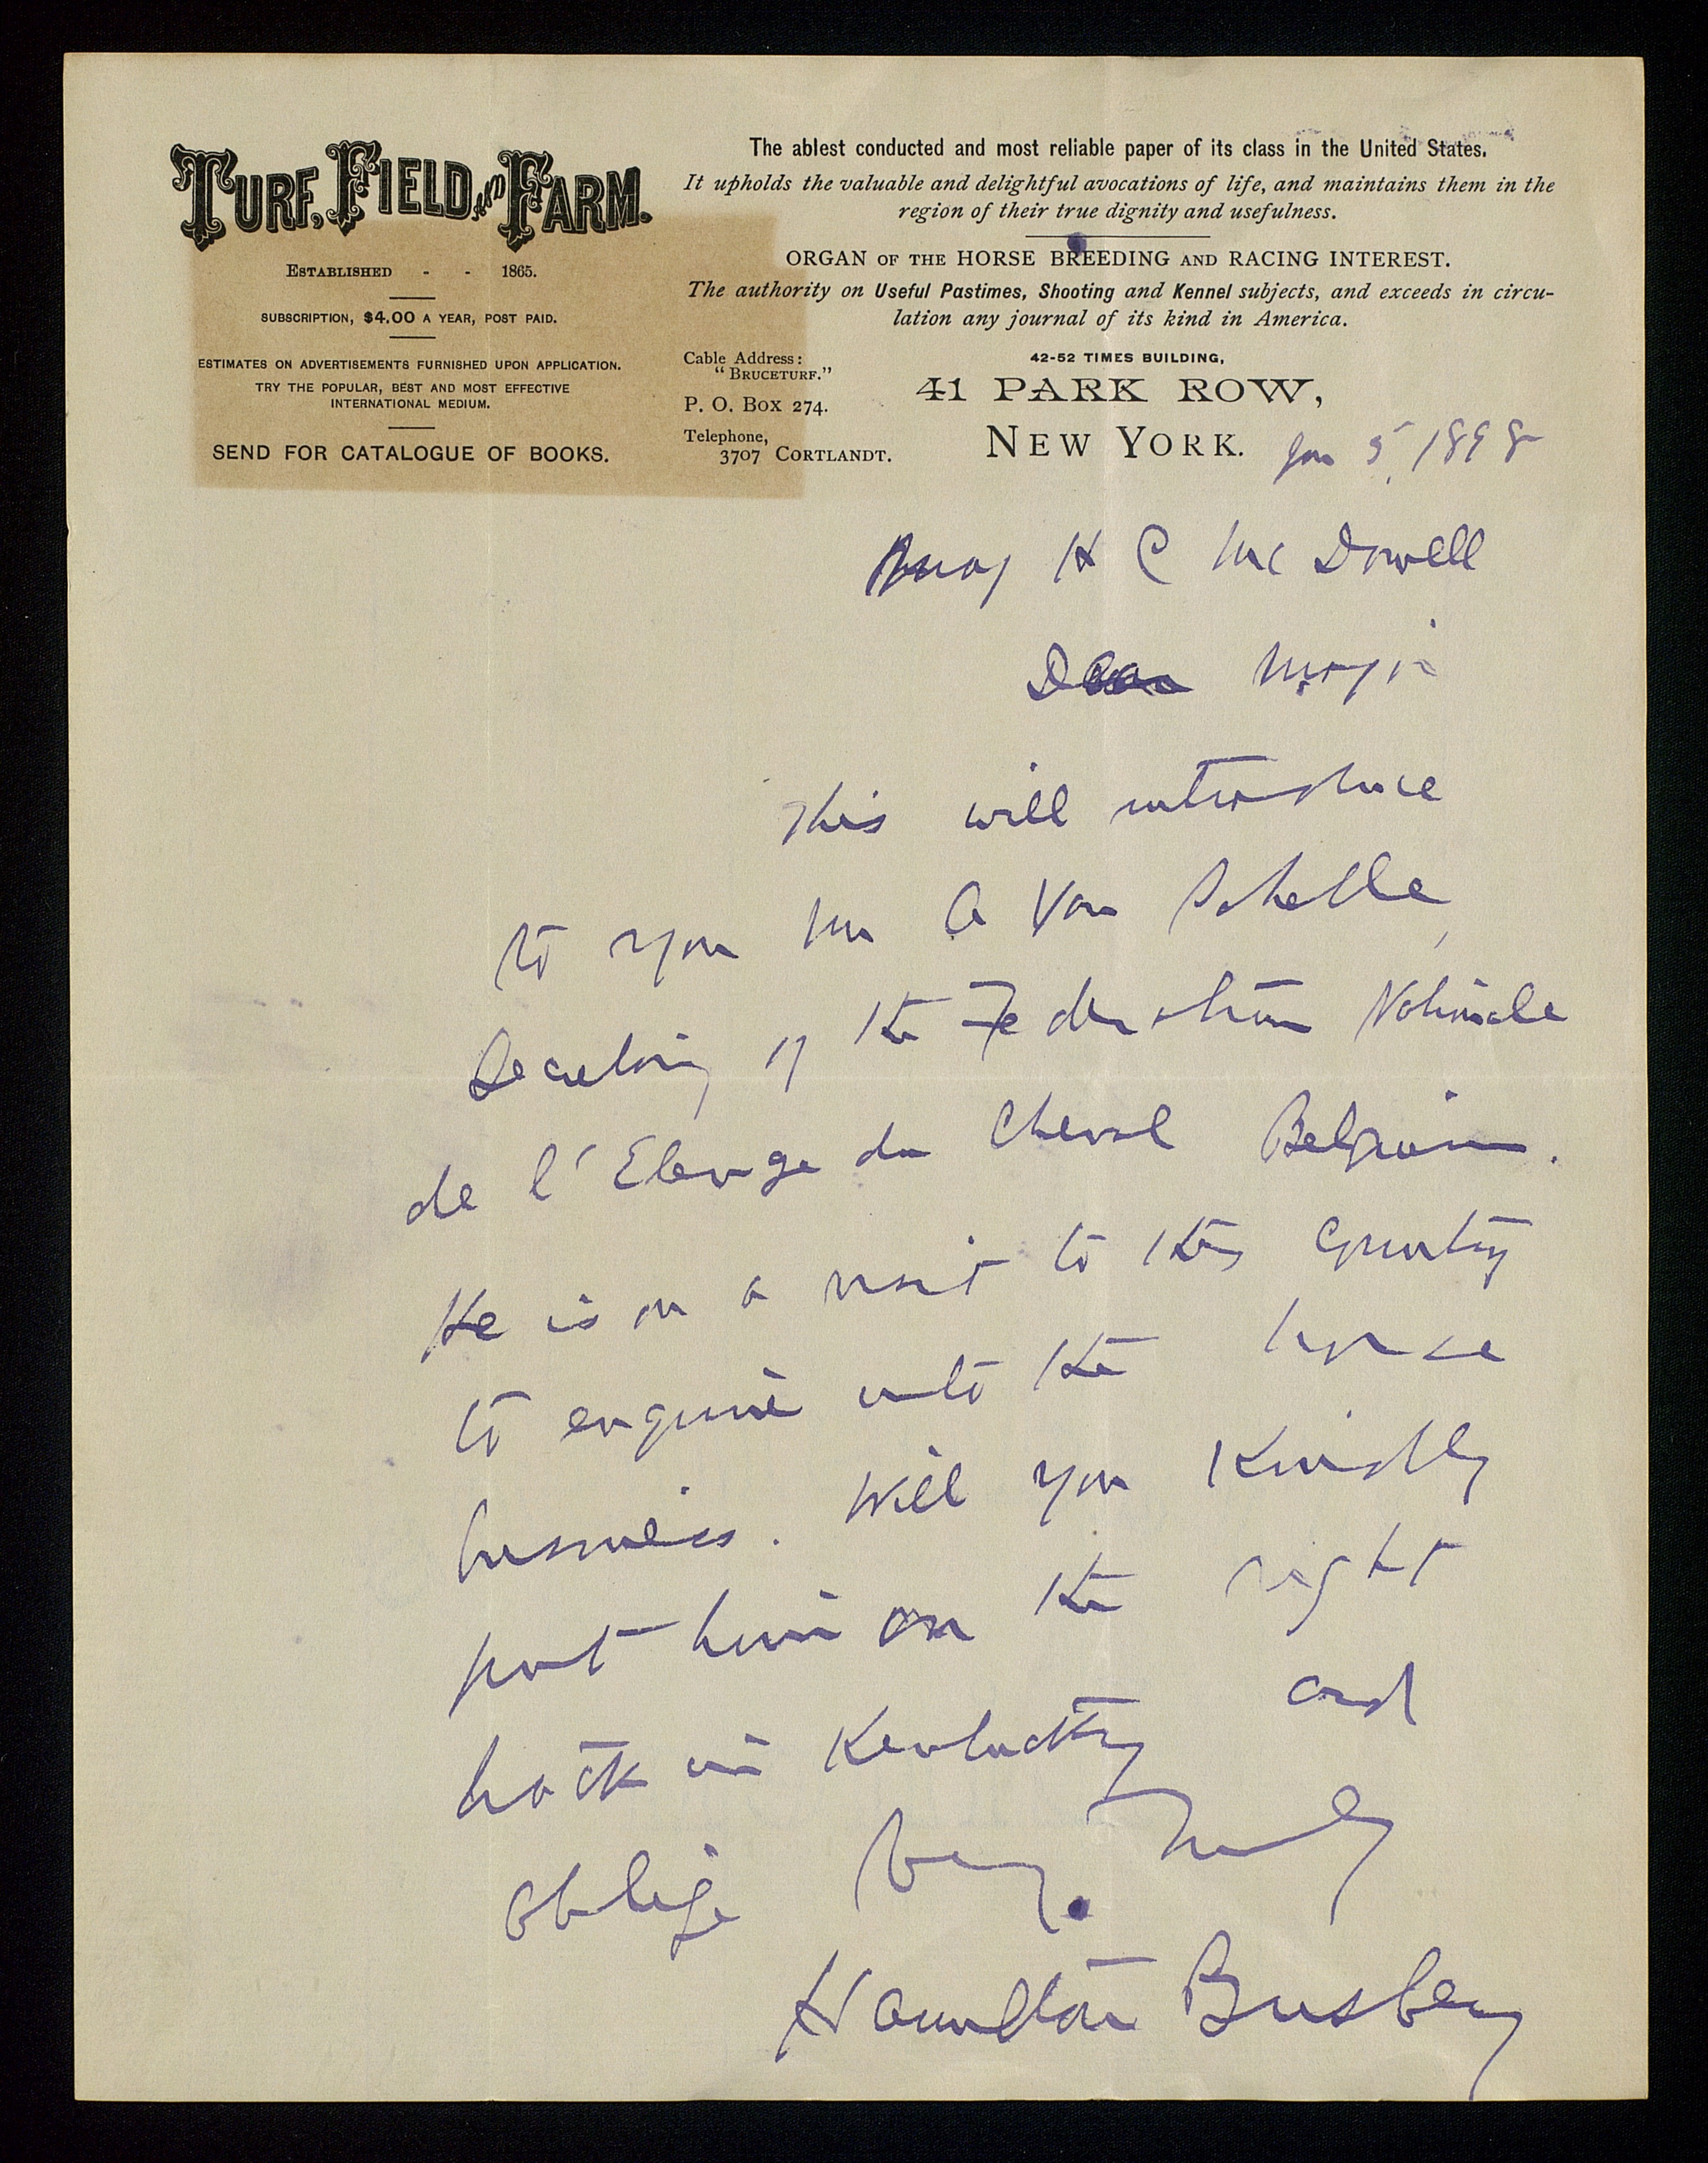 TURF, FIELD AND FARM.
ESTABLISHED - - 1865.
SUBSCRIPTION, $4.00 A YEAR, POST PAID.
ESTIMATES ON ADVERTISEMENTS FURNISHED UPON APPLICATION.
TRY THE POPULAR, BEST AND MOST EFFECTIVE
INTERNATIONAL MEDIUM.
SEND FOR CATALOGUE OF BOOKS.
The ablest conducted and most reliable paper of its class in the United States.
It upholds the valuable and delightful avocations of life, and maintains them in the
region of their true dignity and usefulness.
ORGAN OF THE HORSE BREEDING AND RACING INTEREST.
The authority on Useful Pastimes, Shooting and Kennel subjects, and exceeds in circu-
lation any journal of its kind in America.
Cable Address:
"BRUCETURF."
P. O. Box 274.
Telephone,
3707 CORTLANDT.
42-52 TIMES BUILDING,
41 PARK ROW,
NEW YORK. Jan 5, 1898
Maj H C McDowell
Dear Major
This will introduce
to you Mr A Van Schelle,
Secretary of the Federation Nationale
de l'Elevage du Cheval Belgium.
He is on a visit to this country
to enquire into the horse
business. Will you kindly
put him on the right
track in Kentucky and
oblige Very Truly
Hamilton Busbey